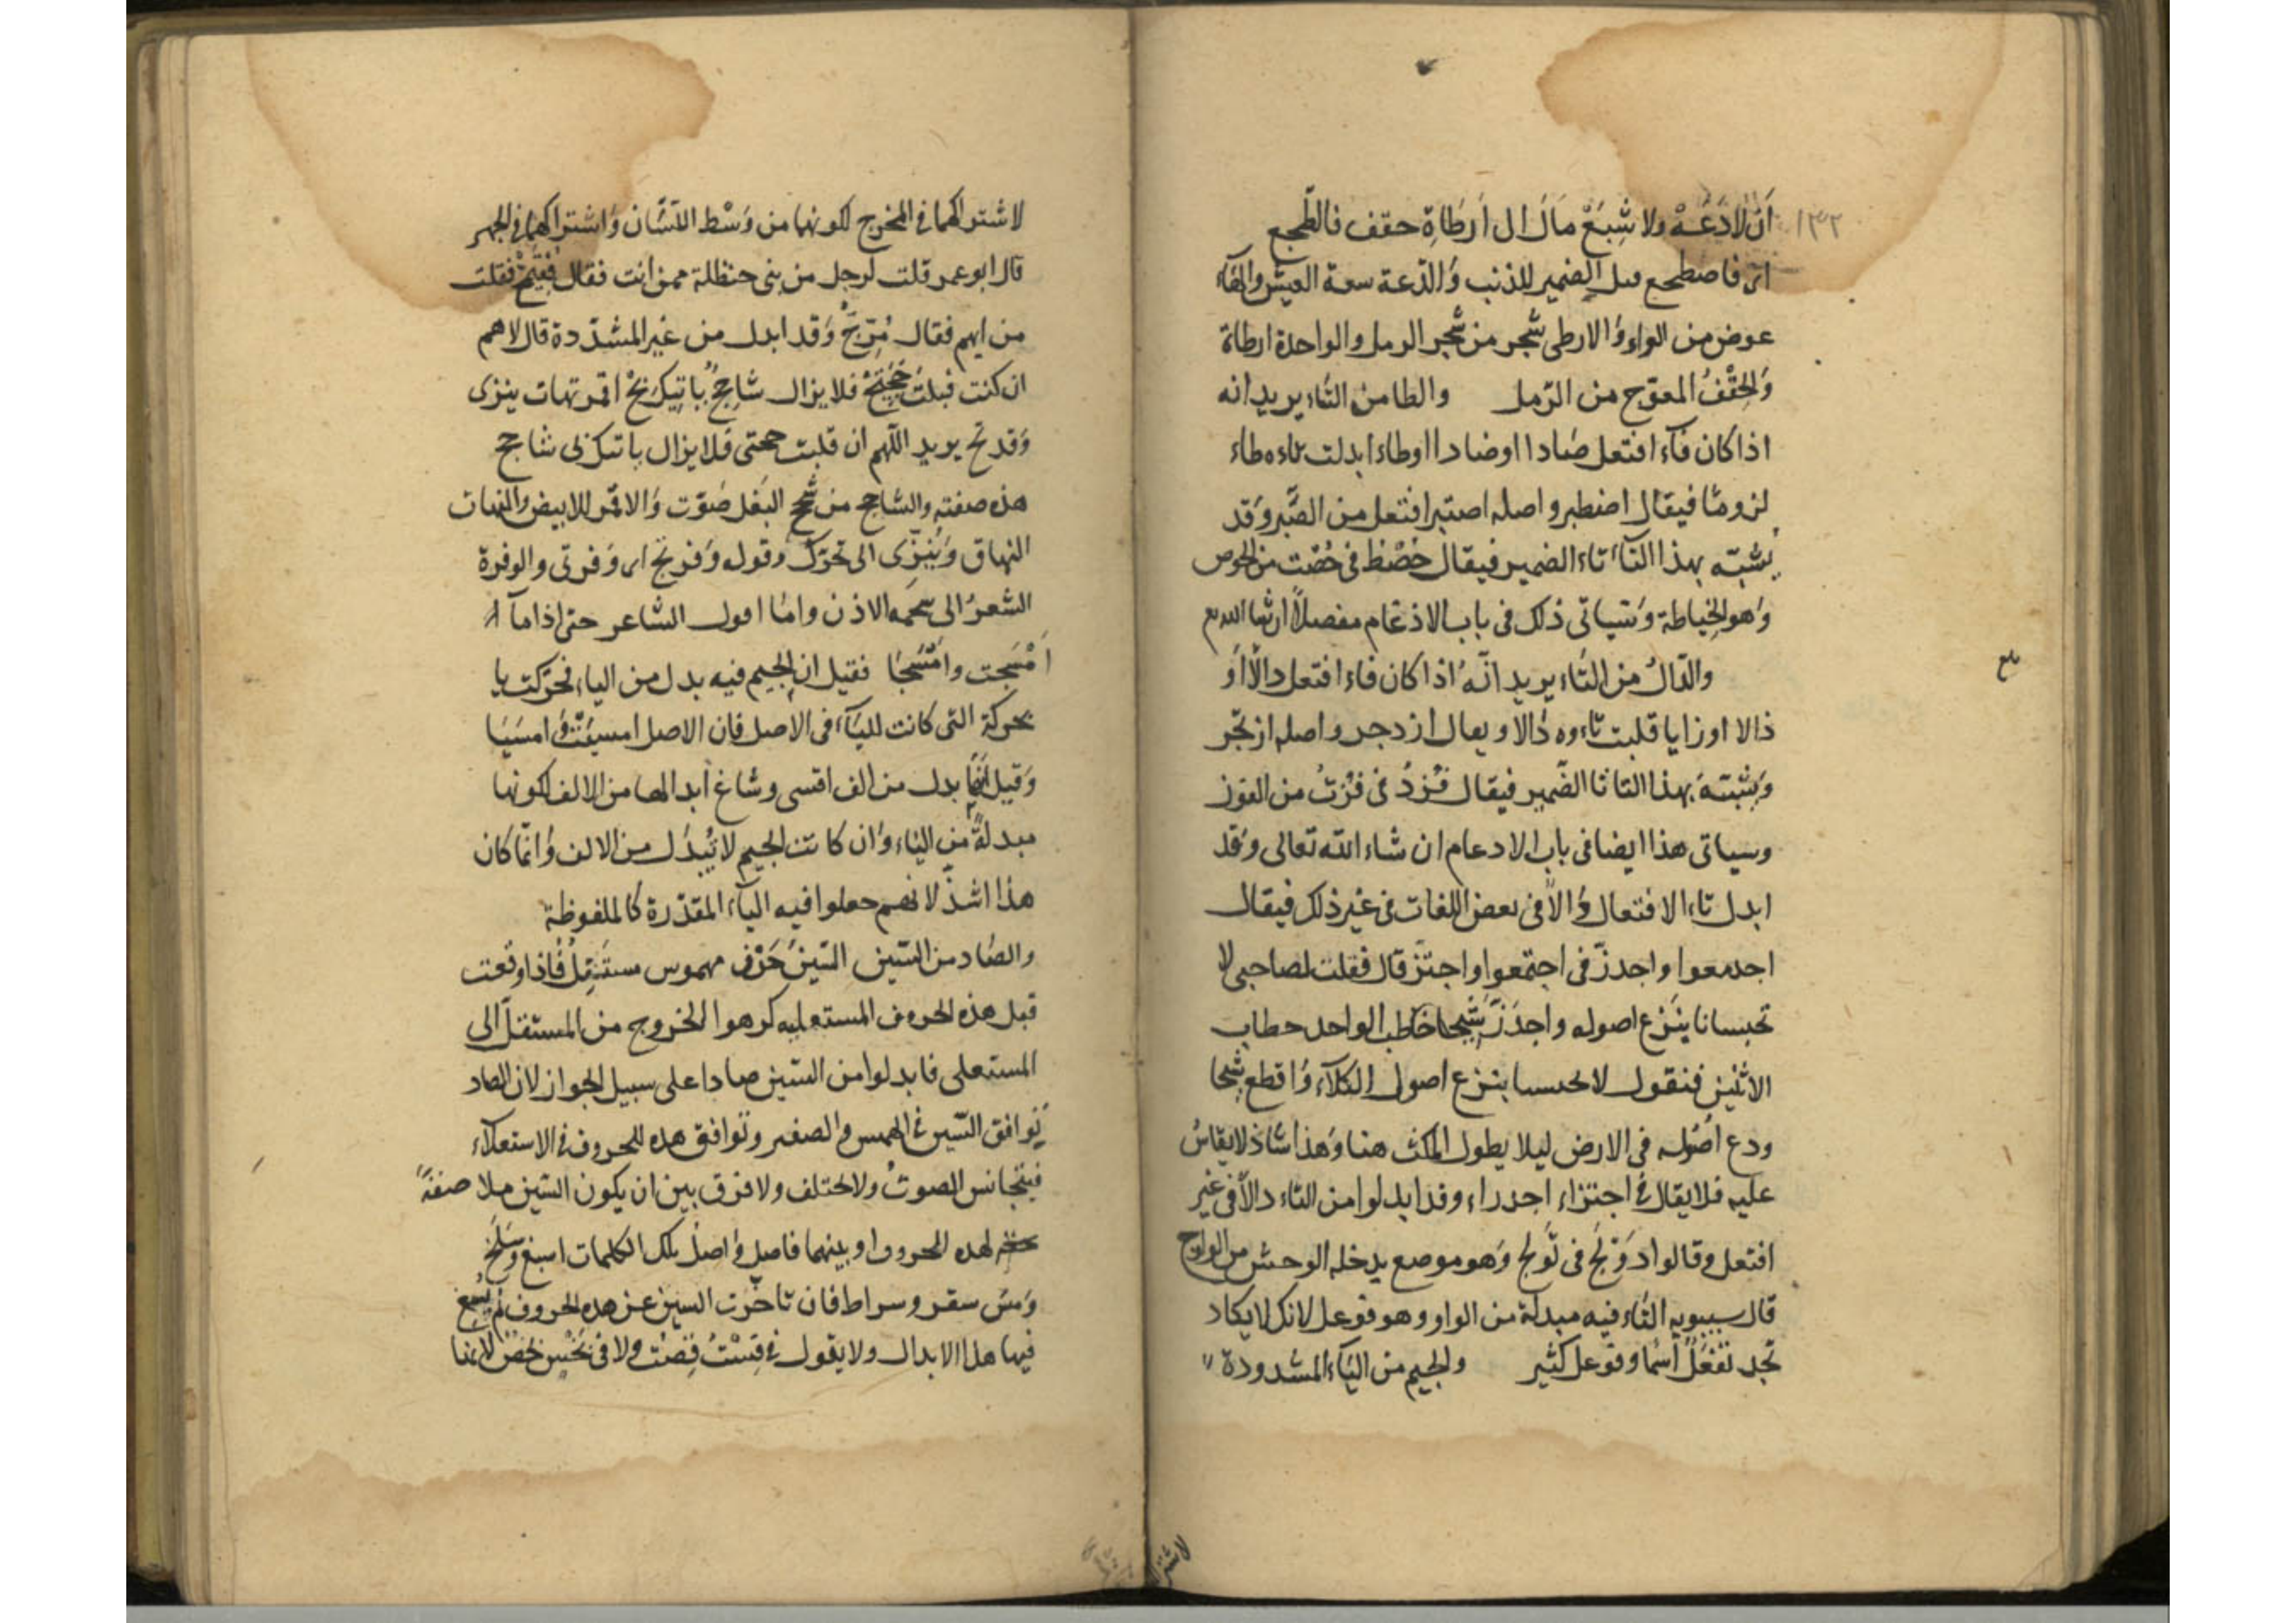 ١٣٢
أن لا دَعَهْ ولا شِبَعْ مال ال ارطاةِ حقف فالطجع
اى فاصطجع الضمير للذئب والدعة سعة العيش والهاء
عوض من الواو والارطى شجر من شجر الرمل والواحدة ارطاة
وَالحِقْفُ المعوّج من الرّمل والطا من التاء يريد انه
اذا كان فآء افتعل صادا اوضادا اوطاء ابدلت تاءه طاء
لزوما فيقال اصطبر واصله اصتبر افتعل من الصَّبر وقد
يشبّه بهذا التآء تاء الضمير فيقال حُصْط فى حُصْت من الحوص
وَهو الخياطة وَسياتى ذلك فى باب الادغام مفصلاً ان شا الله تع
والدّالُ من التاء يريد انّهُ اذا كان فاء افتعل دالاً أو
ذالا اوزايا قلبت تاءوه دالا ويعال ازدجر واصله ازتجر
وَيشبّه بهذا التا تا الضّمير فيقال فُزدُ فى فُزتُ من الفوز
وسياتى هذا ايضا فى باب الادعام ان شاء الله تعالى وقد
ابدل تاء الافتعال دالاً فى بعض اللغات فى غير ذلك فيقال
اجدمعوا واجدزّ فى اجتمعوا واجتزّ قال فقلت لصاحبى لا
تحبسانا ينزع اصوله واجدَزّ شيحا خاطب الواحد حطاب
الاثنين فنقول لا تحبسنا بنزع اصول الكلآء واقطع شيحا
ودع اصُوله فى الارض ليلا يطول المكث هنا وَهذا شاذ لا يقاسُ
عليه فلا يقال فى اجتزاء اجدراء وقد ابدلوا من التاء دالاً فى غير
افتعل وقالوا دَوْلَج فى تَولج وَهو موصع يدخله الوحش من الولوج
قال سيبويه التاء فيه مبدلة من الواو وهو فوعل لانك لا يكاد
تجد تَفْعَلُ اسما وفوعل كثير والجيم من اليآء المشدودة
تع
لاشترا
لاشتراكهما فى المخرج لكونهما من وَسْط اللسَان وَاشتراكهما فى الجهر
قال ابوعمر قلت لرجل من بنى حنظلة ممن انت فقال فُقَيْمِجّ فقلت
من ايهم فقال مُرّجّ وَقد ابدل من غير المشدّدة قال لاهم
ان كنت قبلت حَجّتِجْ فلا يزال شاحِجٌ ياتيك بِجْ اقمر نهات ينزى
وَفرتج يريد اللّهم ان قلبت حجتى فلا يزال ياتيك بى شاحج
هذه صفته والشاحج من شحج البَغل صَوّت وَالاقمر للابيض والنهات
النهاق وَيُنَزّى اى تحرّك وقوله وَفرتج اى وَفرتى والوفرة
الشعرُ الى شحمه الاذن واما اقول الشاعر حتى اذا ما
امْسَجت وامْسَجَا فقيل ان الجيم فيه بدل من الياء فحرّكت
بحركة التى كانت لليآء فى الاصل فان الاصل امسيَتْ وَامسَيَا
وَقيل انّها بدل من الف امسى وشاغ ابدالها من الالف لكونها
مبدلةً من الياء وَان كانت الجيم لا تُبدَل من الالف وَانّما كان
هذا اشذّ لانهم جعلوا فيه اليآء المقدّرة كالملفوظة
والصّاد من السّين السّينُ حَرْف مهموس مستفِلٌ فاذا وقعت
قبل هذه الحروف المستعليه كرهوا الخروج من المستفل الى
المستعلى فابدلوا من السّين صادا على سبيل الجواز لان الصاد
توافق السّين فى الهمس والصفير وتوافق هذه الحروف فى الاستعلآء
فيتجانس الصوتُ ولا تختلف ولا فرق بين ان يكون السّين
لهذه الحروف او بينهما فاصل واصل تلك الكلمات اسبغ وسَلَخ
وَمسّ سقر وسراط فان تاخّرت السين عن هذه الحروف لم يَسُغ
فيها هذا الابدال ولا يقول فى قِسْتُ قِصْتُ ولا فى بَخْسٍ بخص